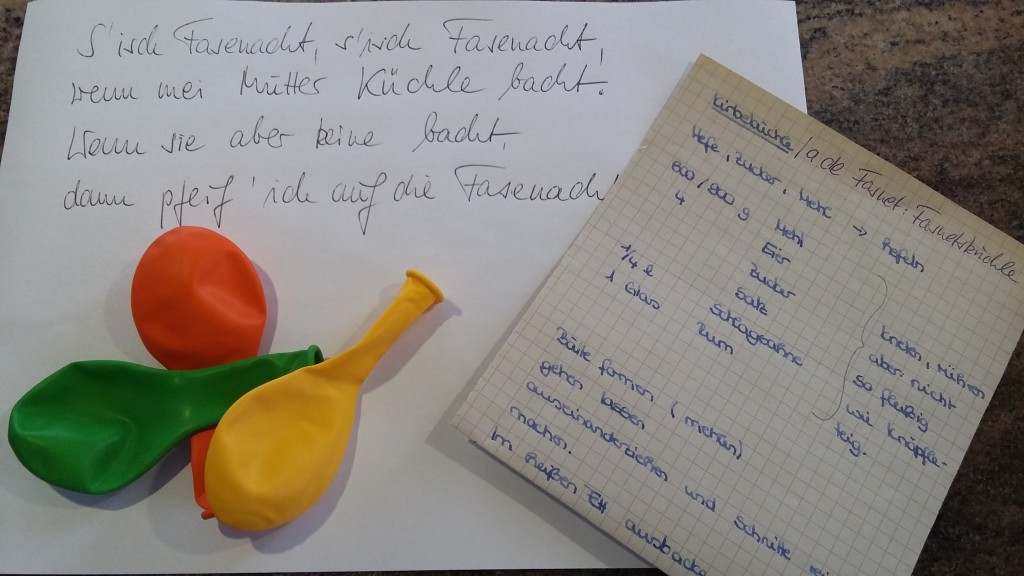 S'isch Fasenacht, s'isch Fasenacht,
wenn mei Mutter Küchle bacht.
Wenn sie aber keine bacht,
dann pfeif' ich auf die Fasenach
Kirbeküchle / a de Fasnet: Fasnetsküchle
Hefe, Zucker, Milch → Hefeln
600/800 g Mehl
4 Eier
Zucker
Salz
1/4 l Schlagsahne
1 Glas Rum
kneten, rühren
aber nicht
so fleißig
wie Knöpfle-
teig.
Bälle formen (
gehen lassen
auseinanderziehen und Schnitte rei
machen.
Im heißen Fett ausbacke